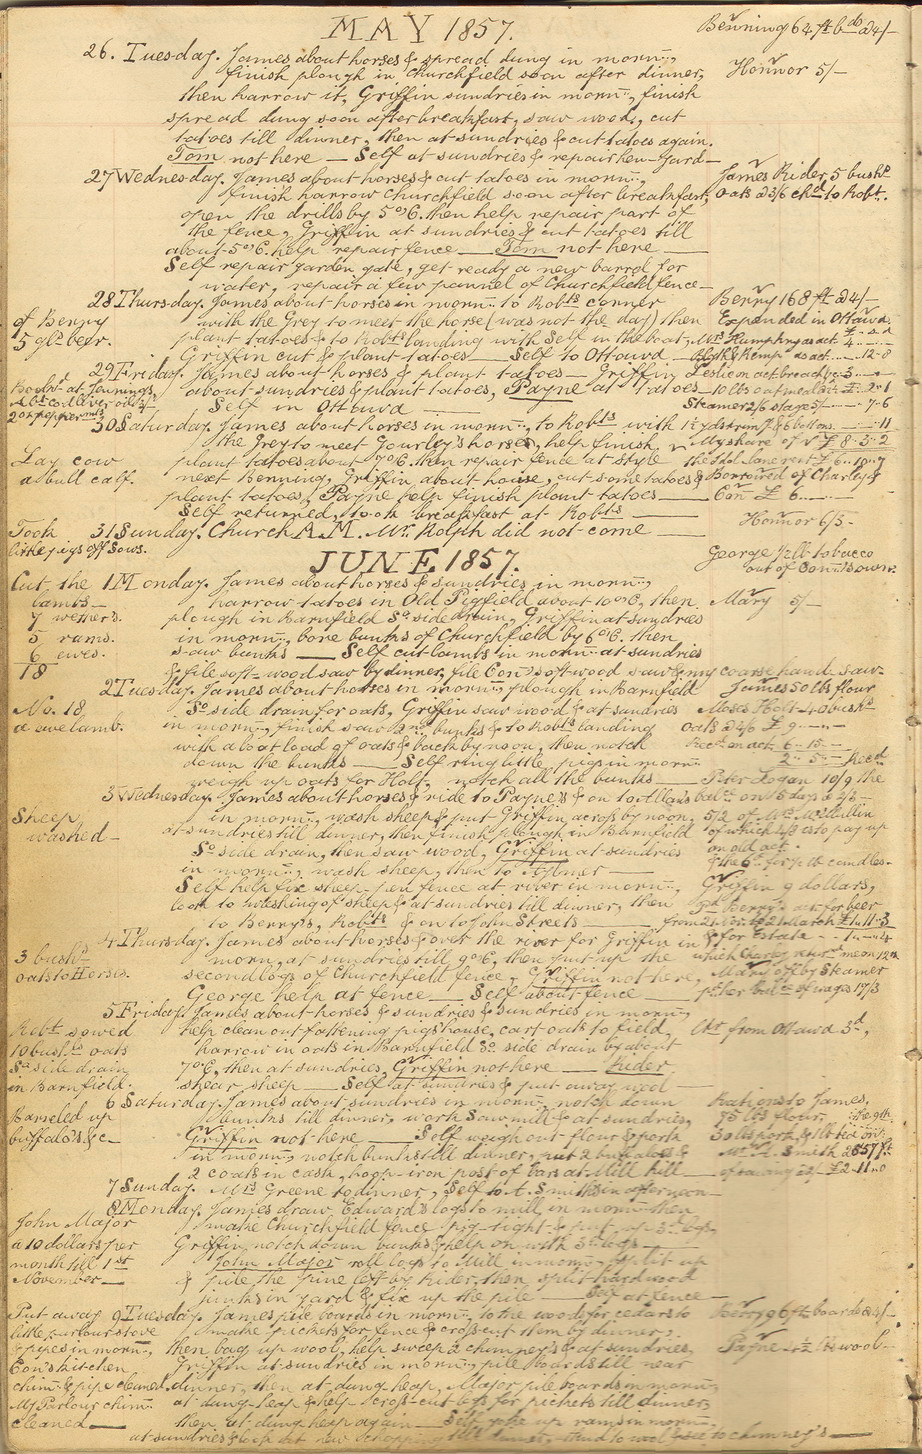 MAY 1857.
Benning 64 ft bds @ 4/-
26. Tuesday. James about horses & spread dung in morn:,
finish plough in Churchfield soon after dinner,
Honnor 5/-
then harrow it, Griffin sundries in morn:, finish
spread dung soon after breakfast, saw wood, cut
tatoes till dinner, then at sundries & cut tatoes again.
Tom not here — Self at sundries & repair hen-yard—
27 Wednesday. James about horses & cut tatoes in morn:,
James Rider, 5 bushs
finish harrow Churchfield soon after breakfast,
oats @ 3/6 chd to Robt.
open the drills by 5 o'C. then help repair part of
the fence, Griffin at sundries & cut tatoes till
about 5 o'C. help repair fence — Tom not here —
Self repair garden gate, get ready a new barrel for
water, repair a few pannel of Churchfield fence—
28 Thursday. James about horses in morn: to Robts corner
Berry 168 ft @ 4/-
of Berry
with the Grey to meet the horse (was not the day) then
Expended in Ottawa
5 gls beer.
plant tatoes & to Robts landing with Self in the boat,
Mrs Humphrys act 4
Griffin cut & plant tatoes — Self to Ottawa —
Blyth & Kemp's act 12-8
29 Friday. James about horses & plant tatoes — Griffin
Leslie on act
Bought at Jennings
about sundries & plant tatoes, Payne at tatoes —
10 lbs oatmeal
cod liver oil
Self in Ottawa —
Steamer 2/6 stage 5/- 7-6
2 oz peppermts
30 Saturday. James about horses in morn:, to Robts with
6 buttons 11
the Grey to meet Gourley's horse, help finish
My share of £ 8-3-2
Lay cow
plant tatoes about o'C. then repair fence at style
a bull calf.
next Benning, Griffin about house, cut some tatoes &
Borrowed of Charley &
plant tatoes, Payne help finish plant tatoes —
Con £ 6
Self returned, took breakfast at Robts —
Honnor 6/3-
Took
31 Sunday. Church A.M. Mr. Rolph did not come —
little pigs off sows.
JUNE 1857.
George 1/2 lb tobacco
out of Con's own.
Cut the
1 Monday. James about horses & sundries in morn:,
lambs —
harrow tatoes in Old Pigfield about 10 o'C, then
Mary 5/-
7 wethers.
plough in Barnfield So. side drain, Griffin at sundries
5 rams.
in morn:, bore bunks of Churchfield by 6 o'C. then
6 ewes.
saw bunks — Self cut lambs in morn: at sundries
18
& file soft-wood saw by dinner, file Con's soft wood saw & my coarse hand-saw-
2 Tuesday. James about horses in morn:, plough in Barnfield
James 50 lbs flour
No. 18,
So. side drain for oats, Griffin saw wood & at sundries
Moses Holt 40 bushs
a ewe lamb.
in morn:, finish saw bunks & to Robts landing
oats
with a boat load of oats & back by noon, then notch
Recd on act. 6-15-
down the bunks — Self ring little pigs in morn:
2-5- Recd
weigh up oats for Holt, notch all the bunks —
Peter Logan 10/9 the
3 Wednesday. James about horses & ride to Payne's & on to Allan's
Sheep
in morn:, wash sheep & put Griffin across by noon,
5/2 of Mrs McMullin
washed —
at sundries till dinner, then finish plough in Barnfield
of which 4/8 is to pay up
So. side drain, then saw wood, Griffin at sundries
on old act.
in morn:, wash sheep, then to
& the 6d. for 1/2 lb candles-
Self help fix sheep-pen fence at river in morn:,
Griffin 9 dollars,
look to washing of sheep & at sundries till dinner, then
pd Berry's act for beer
to Berry's, Robts & on to John Streets —
from 21 Nov. to 21 March £1-11-3
4 Thursday. James about horses & over the river for Griffin in
& for Estate
3 bushs
morn, at sundries till 9 o'C, then put up the
which Charley returd me on 12th
oats to Horses.
second logs of Churchfield fence — Griffin not here,
Mary off by Steamer
George help at fence — Self about fence —
pd her balce of wages 17/3
5 Friday. James about horses & sundries & sundries in morn:,
Robt. sowed
help clean out fattening pigs house, cart oats to field,
Chs from Ottawa 3d,
10 bushs oats
harrow in oats in Barnfield So. side drain by about
So. side drain
7 o'C, then at sundries, Griffin not here — Rider
in Barnfield.
shear sheep — Self at sundries & put away wool —
6 Saturday. James about sundries in morn:, notch down
Rations to James,
Barreled up
bunks till dinner, work Sawmill & at sundries,
75 lbs flour,
buffalo's &c —
Griffin not here — Self weigh out flour & pork
30 lbs pork, & 1 lb tea
in morn:, notch bunks till dinner, put 2 buffaloes &
Mr. A. Smith 2857 ft
2 coats in cask, hoop-iron post of bars at Mill hill —
£2-11-0
7 Sunday. Mrs Greene to dinner, Self to A. Smith's in afternoon —
8 Monday. James draw Edward's logs to mill in morn: then
John Major
make Churchfield fence pig-tight & put up 3rd logs,
a 10 dollars per
Griffin notch down bunks & help on with 3rd logs —
month till 1st
John Major roll logs to Mill in morn:, split up
November —
& pile the pine left by Rider, then split hardwood
junks in yard & fix up the pile — Self at fence —
Put away
9 Tuesday. James pile boards in morn:, to the woods for cedars to
Berry 96 ft boards @ 4/-
little parlour stove
make pickets for fence & cross-cut them by dinner,
& pipes in morn:,
then bag up wool, help sweep 2 chimney's & at sundries,
Payne 4 1/2 lbs wool-
Con's kitchen
Griffin at sundries in morn:, pile boards till near
chim: & pipe cleaned,
dinner, then at dung heap, Major pile boards in morn:
My Parlour chim:
at dung-heap & help cross-cut logs for pickets till dinner,
cleaned —
then at dung heap again — Self yoke up rams in morn:
at sundries & look at new till dinner, attend to wool & see to chimney's —